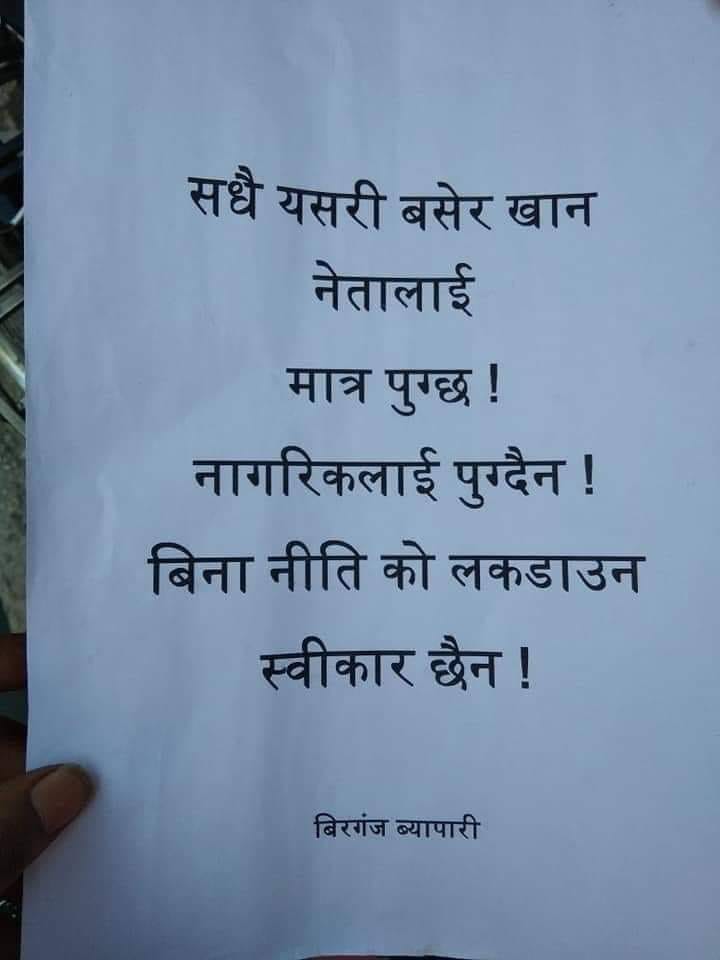 सधै यसरी बसेर खान
नेतालाई
मात्र पुग्छ !
नागरिकलाई पुग्दैन !
बिना नीति को लकडाउन
स्वीकार छैन !
बिरगंज ब्यापारी